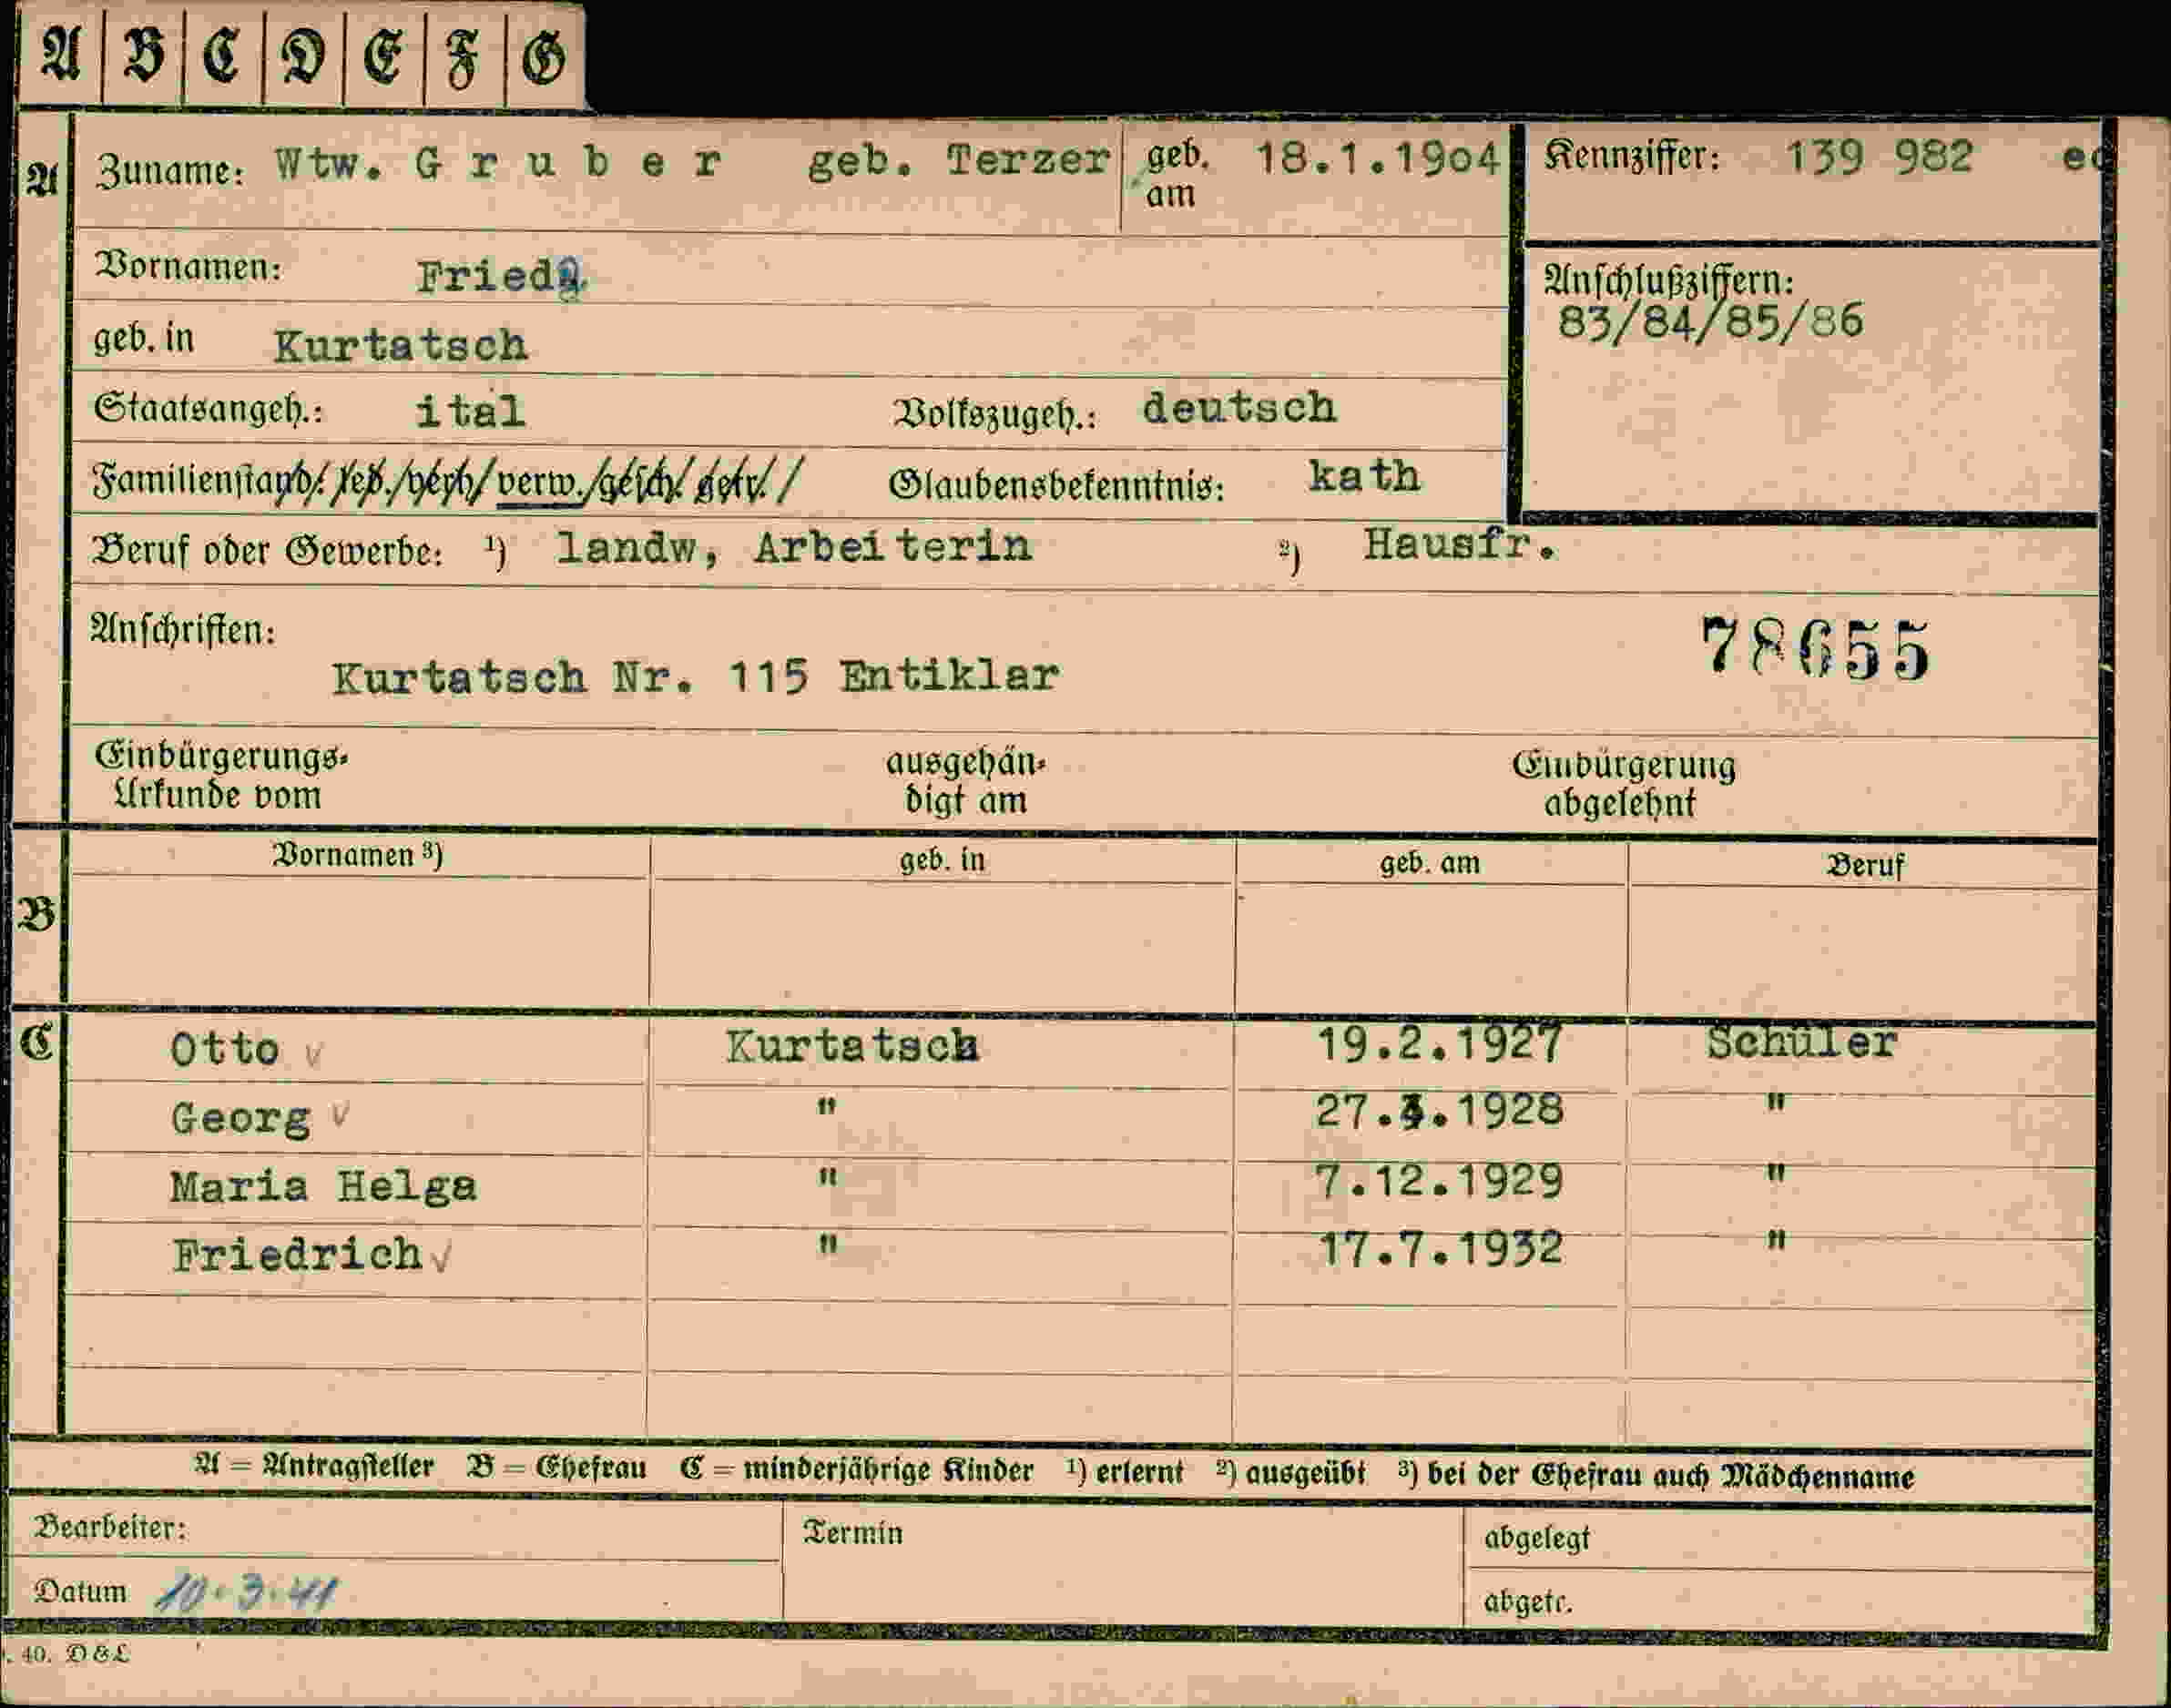 A B C D E F G
A Zuname: Wtw. G r u b e r geb. Terzer geb. am 18.1.1904 Kennziffer: 139 982
Vornamen: Frieda
Anschlußziffern:
83/84/85/86
geb. in Kurtatsch
Staatsangeh.: ital Volkszugeh.: deutsch
Familienstand: led./verh/verw./gesch/getr./ Glaubensbekenntnis: kath
Beruf oder Gewerbe: ¹) landw, Arbeiterin ²) Hausfr.
Anschriften:
78655
Kurtatsch Nr. 115 Entiklar
Einbürgerungs-Urkunde vom ausgehändigt am Einbürgerung abgelehnt
Vornamen ³) geb. in geb. am Beruf
B
C Otto Kurtatsch 19.2.1927 Schüler
Georg " 27.3.1928 "
Maria Helga " 7.12.1929 "
Friedrich " 17.7.1932 "
A = Antragsteller B = Ehefrau C = minderjährige Kinder ¹) erlernt ²) ausgeübt ³) bei der Ehefrau auch Mädchenname
Bearbeiter: Termin abgelegt
Datum 10.3.41 abgetr.
. 40. D&L